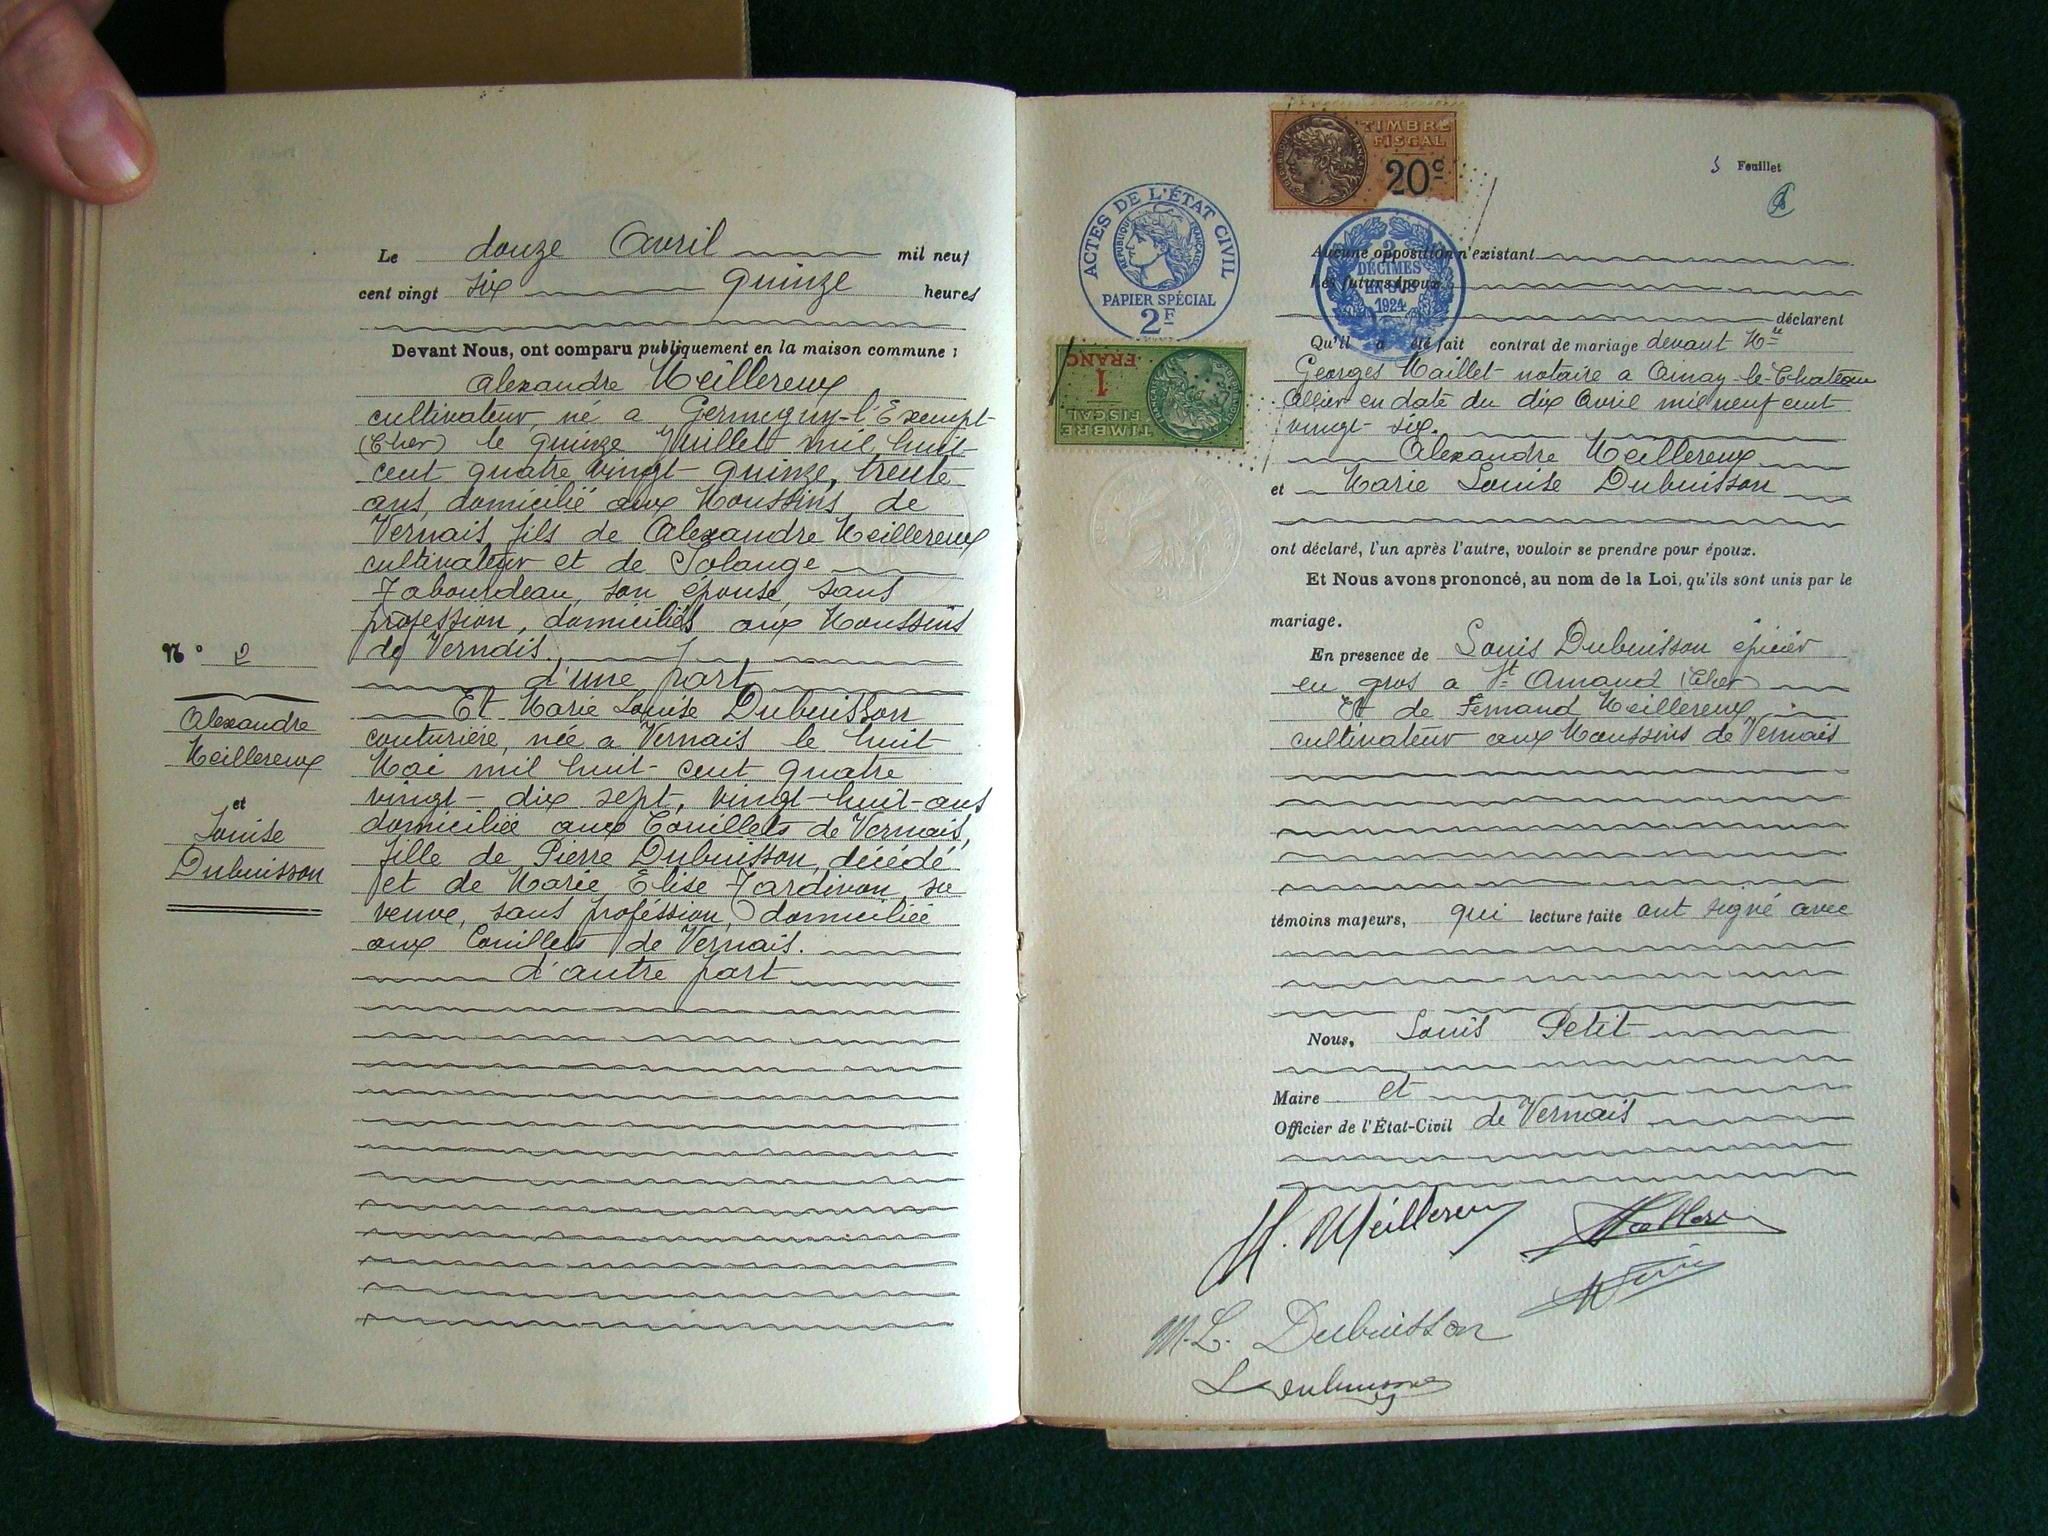 Le douze Avril mil neuf
cent vingt six quinze heures
Devant Nous, ont comparu publiquement en la maison commune :
Alexandre Meillereux
cultivateur, né a Germigny-l'Exempt
(Cher) le quinze Juillet mil huit
cent quatre vingt quinze, trente
ans, domicilié aux Moussins de
Vernais, fils de Alexandre Meillereux
cultivateur et de Solange
Tabourdeau, son épouse, sans
profession, domiciliés aux Moussins
de Vernais.
d'une part
Et Marie Louise Dubuisson
couturière, née a Vernais le huit
Mai mil huit cent quatre
vingt-dix sept, vingt-huit-ans
domiciliée aux Couillets de Vernais,
fille de Pierre Dubuisson, décédé
et de Marie Elise Tardivon, sa
veuve, sans proféssion, domiciliée
aux Couillets de Vernais.
d'autre part
N° 2
Alexandre
Meillereux
et
Louise
Dubuisson
TIMBRE
FISCAL
20c
5 Feuillet
ACTES DE L'ÉTAT CIVIL
RÉPUBLIQUE FRANÇAISE
PAPIER SPÉCIAL
2F
2
DÉCIMES
EN SUS
1924
1
FRANC
TIMBRE
FISCAL
Aucune opposition n'existant
Les futurs époux
déclarent
Qu'il a été fait contrat de mariage devant Me
Georges Maillet notaire a Ainay-le-Chateau
Allier en date du dix Avril mil neuf cent
vingt-six.
Alexandre Meillereux
et Marie Louise Dubuisson
ont déclaré, l'un après l'autre, vouloir se prendre pour époux.
Et Nous avons prononcé, au nom de la Loi, qu'ils sont unis par le
mariage.
En presence de Louis Dubuisson épicier
en gros a St Amand (Cher)
Et de Fernand Meillereux
cultivateur aux Moussins de Vernais
témoins majeurs, qui lecture faite ont signé avec
Nous, Louis Petit
Maire et
Officier de l'État-Civil de Vernais
Meillereux
M. L. Dubuisson